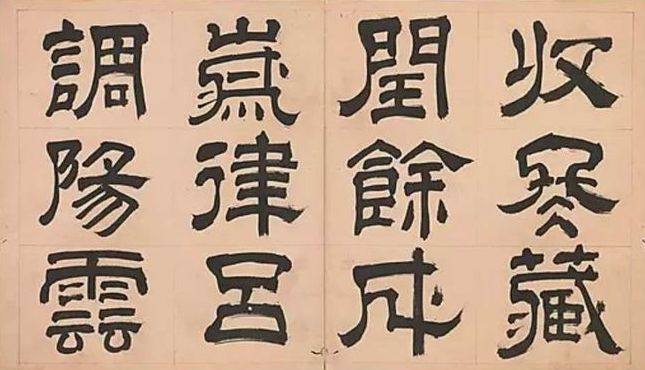 收冬藏
閏餘成
歲律呂
調陽雲